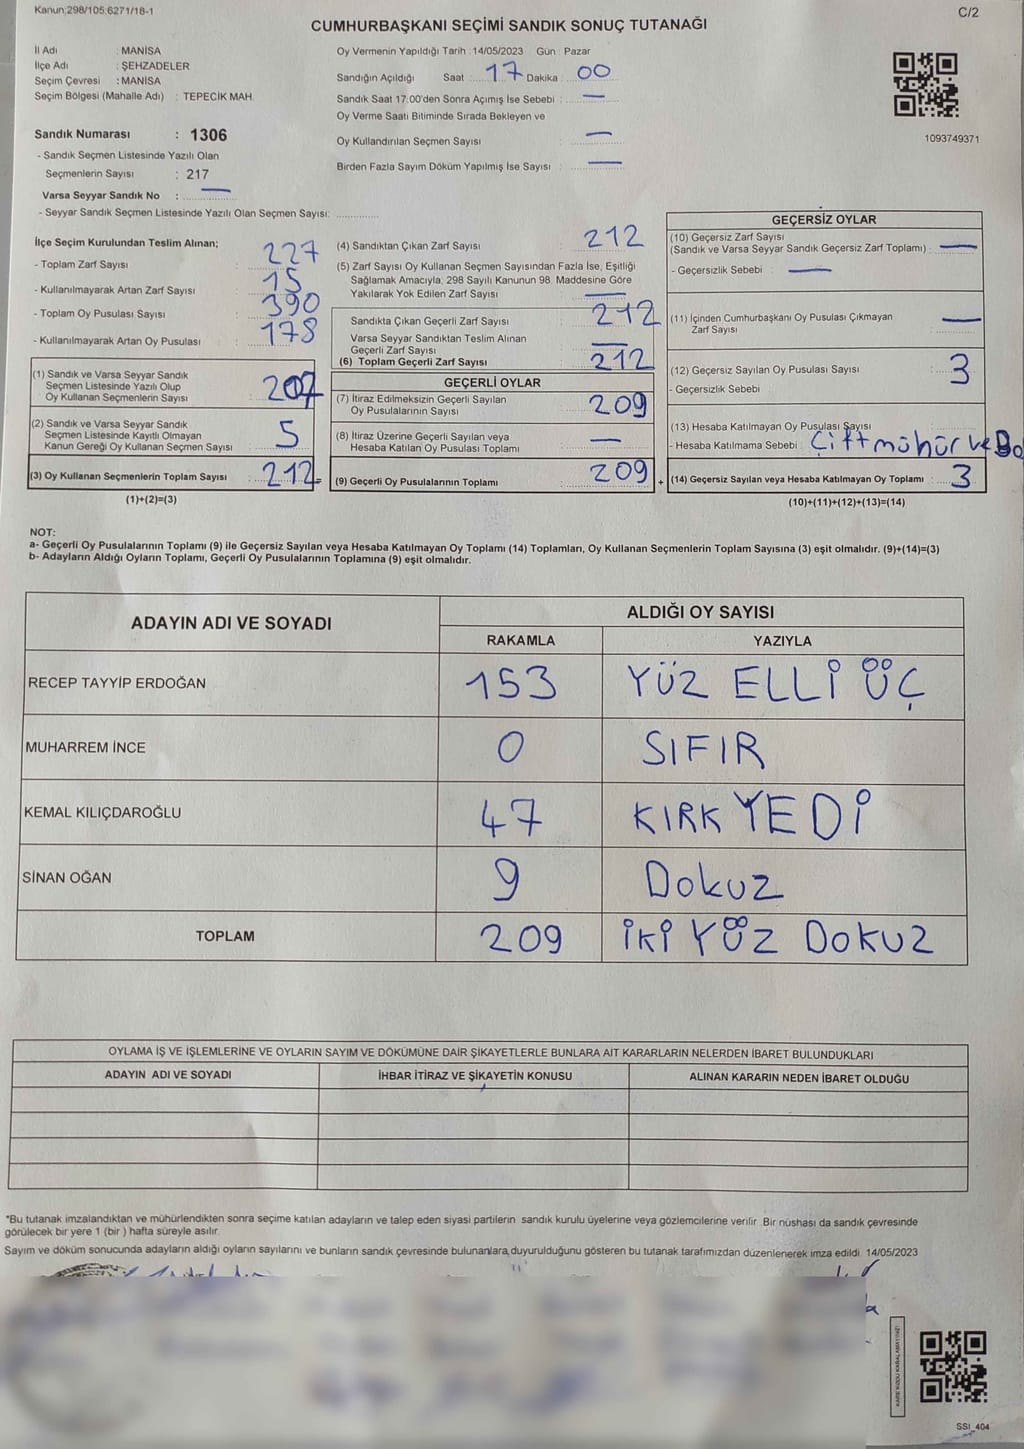 Kanun;298/105;6271/18-1
C/2
CUMHURBAŞKANI SEÇİMİ SANDIK SONUÇ TUTANAĞI
İl Adı : MANİSA
İlçe Adı : ŞEHZADELER
Seçim Çevresi : MANİSA
Seçim Bölgesi (Mahalle Adı) : TEPECİK MAH.
Sandık Numarası : 1306
- Sandık Seçmen Listesinde Yazılı Olan
Seçmenlerin Sayısı : 217
Varsa Seyyar Sandık No : —
- Seyyar Sandık Seçmen Listesinde Yazılı Olan Seçmen Sayısı: ..............
Oy Vermenin Yapıldığı Tarih : 14/05/2023 Gün : Pazar
Sandığın Açıldığı Saat 17 Dakika 00
Sandık Saat 17:00'den Sonra Açımış İse Sebebi : —
Oy Verme Saati Bitiminde Sırada Bekleyen ve
Oy Kullandırılan Seçmen Sayısı —
Birden Fazla Sayım Döküm Yapılmış İse Sayısı : —
1093749371
İlçe Seçim Kurulundan Teslim Alınan;
- Toplam Zarf Sayısı : 227
- Kullanılmayarak Artan Zarf Sayısı : 15
- Toplam Oy Pusulası Sayısı : 390
- Kullanılmayarak Artan Oy Pusulası : 178
(1) Sandık ve Varsa Seyyar Sandık
Seçmen Listesinde Yazılı Olup
Oy Kullanan Seçmenlerin Sayısı : 207
(2) Sandık ve Varsa Seyyar Sandık
Seçmen Listesinde Kayıtlı Olmayan
Kanun Gereği Oy Kullanan Seçmen Sayısı : 5
(3) Oy Kullanan Seçmenlerin Toplam Sayısı : 212 =
(1)+(2)=(3)
(4) Sandıktan Çıkan Zarf Sayısı : 212
(5) Zarf Sayısı Oy Kullanan Seçmen Sayısından Fazla İse, Eşitliği
Sağlamak Amacıyla; 298 Sayılı Kanunun 98. Maddesine Göre
Yakılarak Yok Edilen Zarf Sayısı : —
Sandıkta Çıkan Geçerli Zarf Sayısı : 212
Varsa Seyyar Sandıktan Teslim Alınan
Geçerli Zarf Sayısı : —
(6) Toplam Geçerli Zarf Sayısı : 212
GEÇERLİ OYLAR
(7) İtiraz Edilmeksizin Geçerli Sayılan
Oy Pusulalarının Sayısı : 209
(8) İtiraz Üzerine Geçerli Sayılan veya
Hesaba Katılan Oy Pusulası Toplamı : —
(9) Geçerli Oy Pusulalarının Toplamı : 209 +
GEÇERSİZ OYLAR
(10) Geçersiz Zarf Sayısı
(Sandık ve Varsa Seyyar Sandık Geçersiz Zarf Toplamı) : —
- Geçersizlik Sebebi : —
(11) İçinden Cumhurbaşkanı Oy Pusulası Çıkmayan
Zarf Sayısı : —
(12) Geçersiz Sayılan Oy Pusulası Sayısı : 3
- Geçersizlik Sebebi
(13) Hesaba Katılmayan Oy Pusulası Sayısı
- Hesaba Katılmama Sebebi : Çift mühür ve Bo
(14) Geçersiz Sayılan veya Hesaba Katılmayan Oy Toplamı : 3
(10)+(11)+(12)+(13)=(14)
NOT:
a- Geçerli Oy Pusulalarının Toplamı (9) ile Geçersiz Sayılan veya Hesaba Katılmayan Oy Toplamı (14) Toplamları, Oy Kullanan Seçmenlerin Toplam Sayısına (3) eşit olmalıdır. (9)+(14)=(3)
b- Adayların Aldığı Oyların Toplamı, Geçerli Oy Pusulalarının Toplamına (9) eşit olmalıdır.
ADAYIN ADI VE SOYADI
ALDIĞI OY SAYISI
RAKAMLA YAZIYLA
RECEP TAYYİP ERDOĞAN 153 YÜZ ELLİ ÜÇ
MUHARREM İNCE 0 SIFIR
KEMAL KILIÇDAROĞLU 47 KIRK YEDİ
SİNAN OĞAN 9 DOKUZ
TOPLAM 209 İKİ YÜZ DOKUZ
OYLAMA İŞ VE İŞLEMLERİNE VE OYLARIN SAYIM VE DÖKÜMÜNE DAİR ŞİKAYETLERLE BUNLARA AİT KARARLARIN NELERDEN İBARET BULUNDUKLARI
ADAYIN ADI VE SOYADI İHBAR İTİRAZ VE ŞİKAYETİN KONUSU ALINAN KARARIN NEDEN İBARET OLDUĞU
*Bu tutanak imzalandıktan ve mühürlendikten sonra seçime katılan adayların ve talep eden siyasi partilerin sandık kurulu üyelerine veya gözlemcilerine verilir. Bir nüshası da sandık çevresinde
görülecek bir yere 1 (bir ) hafta süreyle asılır.
Sayım ve döküm sonucunda adayların aldığı oyların sayılarını ve bunların sandık çevresinde bulunanlara duyurulduğunu gösteren bu tutanak tarafımızdan düzenlenerek imza edildi. 14/05/2023
SSI_404